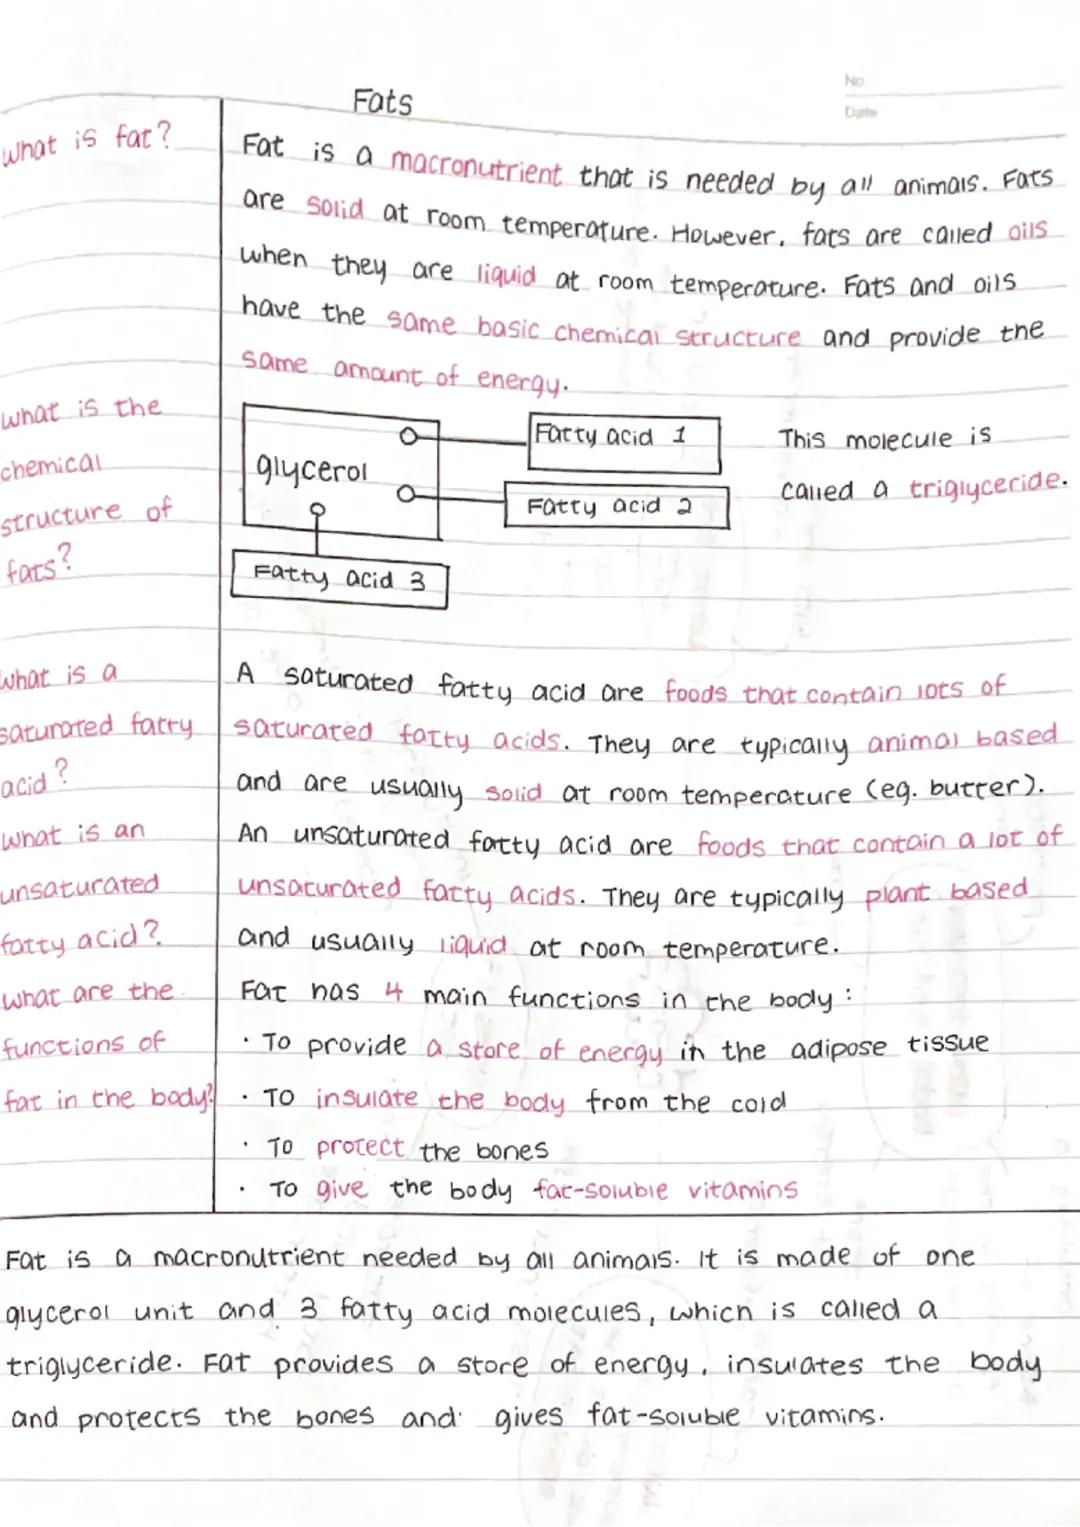 No
Date
Fats
what is fat?
Fat is a macronutrient that is needed by all animals. Fats
are solid at room temperature. However, fats are called oils
when they are liquid at room temperature. Fats and oils
have the same basic chemical structure and provide the
same amount of energy.
what is the
chemical
structure of
fats?
glycerol
Fatty acid 1
Fatty acid 2
Fatty acid 3
This molecule is
called a triglyceride.
what is a
saturated fatty
acid?
A saturated fatty acid are foods that contain lots of
saturated fatty acids. They are typically animal based
and are usually solid at room temperature (eg. butter).
what is an
unsaturated
fatty acid?
An unsaturated fatty acid are foods that contain a lot of
unsaturated fatty acids. They are typically plant based
and usually liquid at room temperature.
what are the
functions of
fat in the body?
Fat has 4 main functions in the body:
· To provide a store of energy in the adipose tissue
· To insulate the body from the cold
· To protect the bones
· To give the body fat-soluble vitamins
Fat is a macronutrient needed by all animals. It is made of one
glycerol unit and 3 fatty acid molecules, which is called a
triglyceride. Fat provides a store of energy, insulates the body
and protects the bones and gives fat-soluble vitamins.